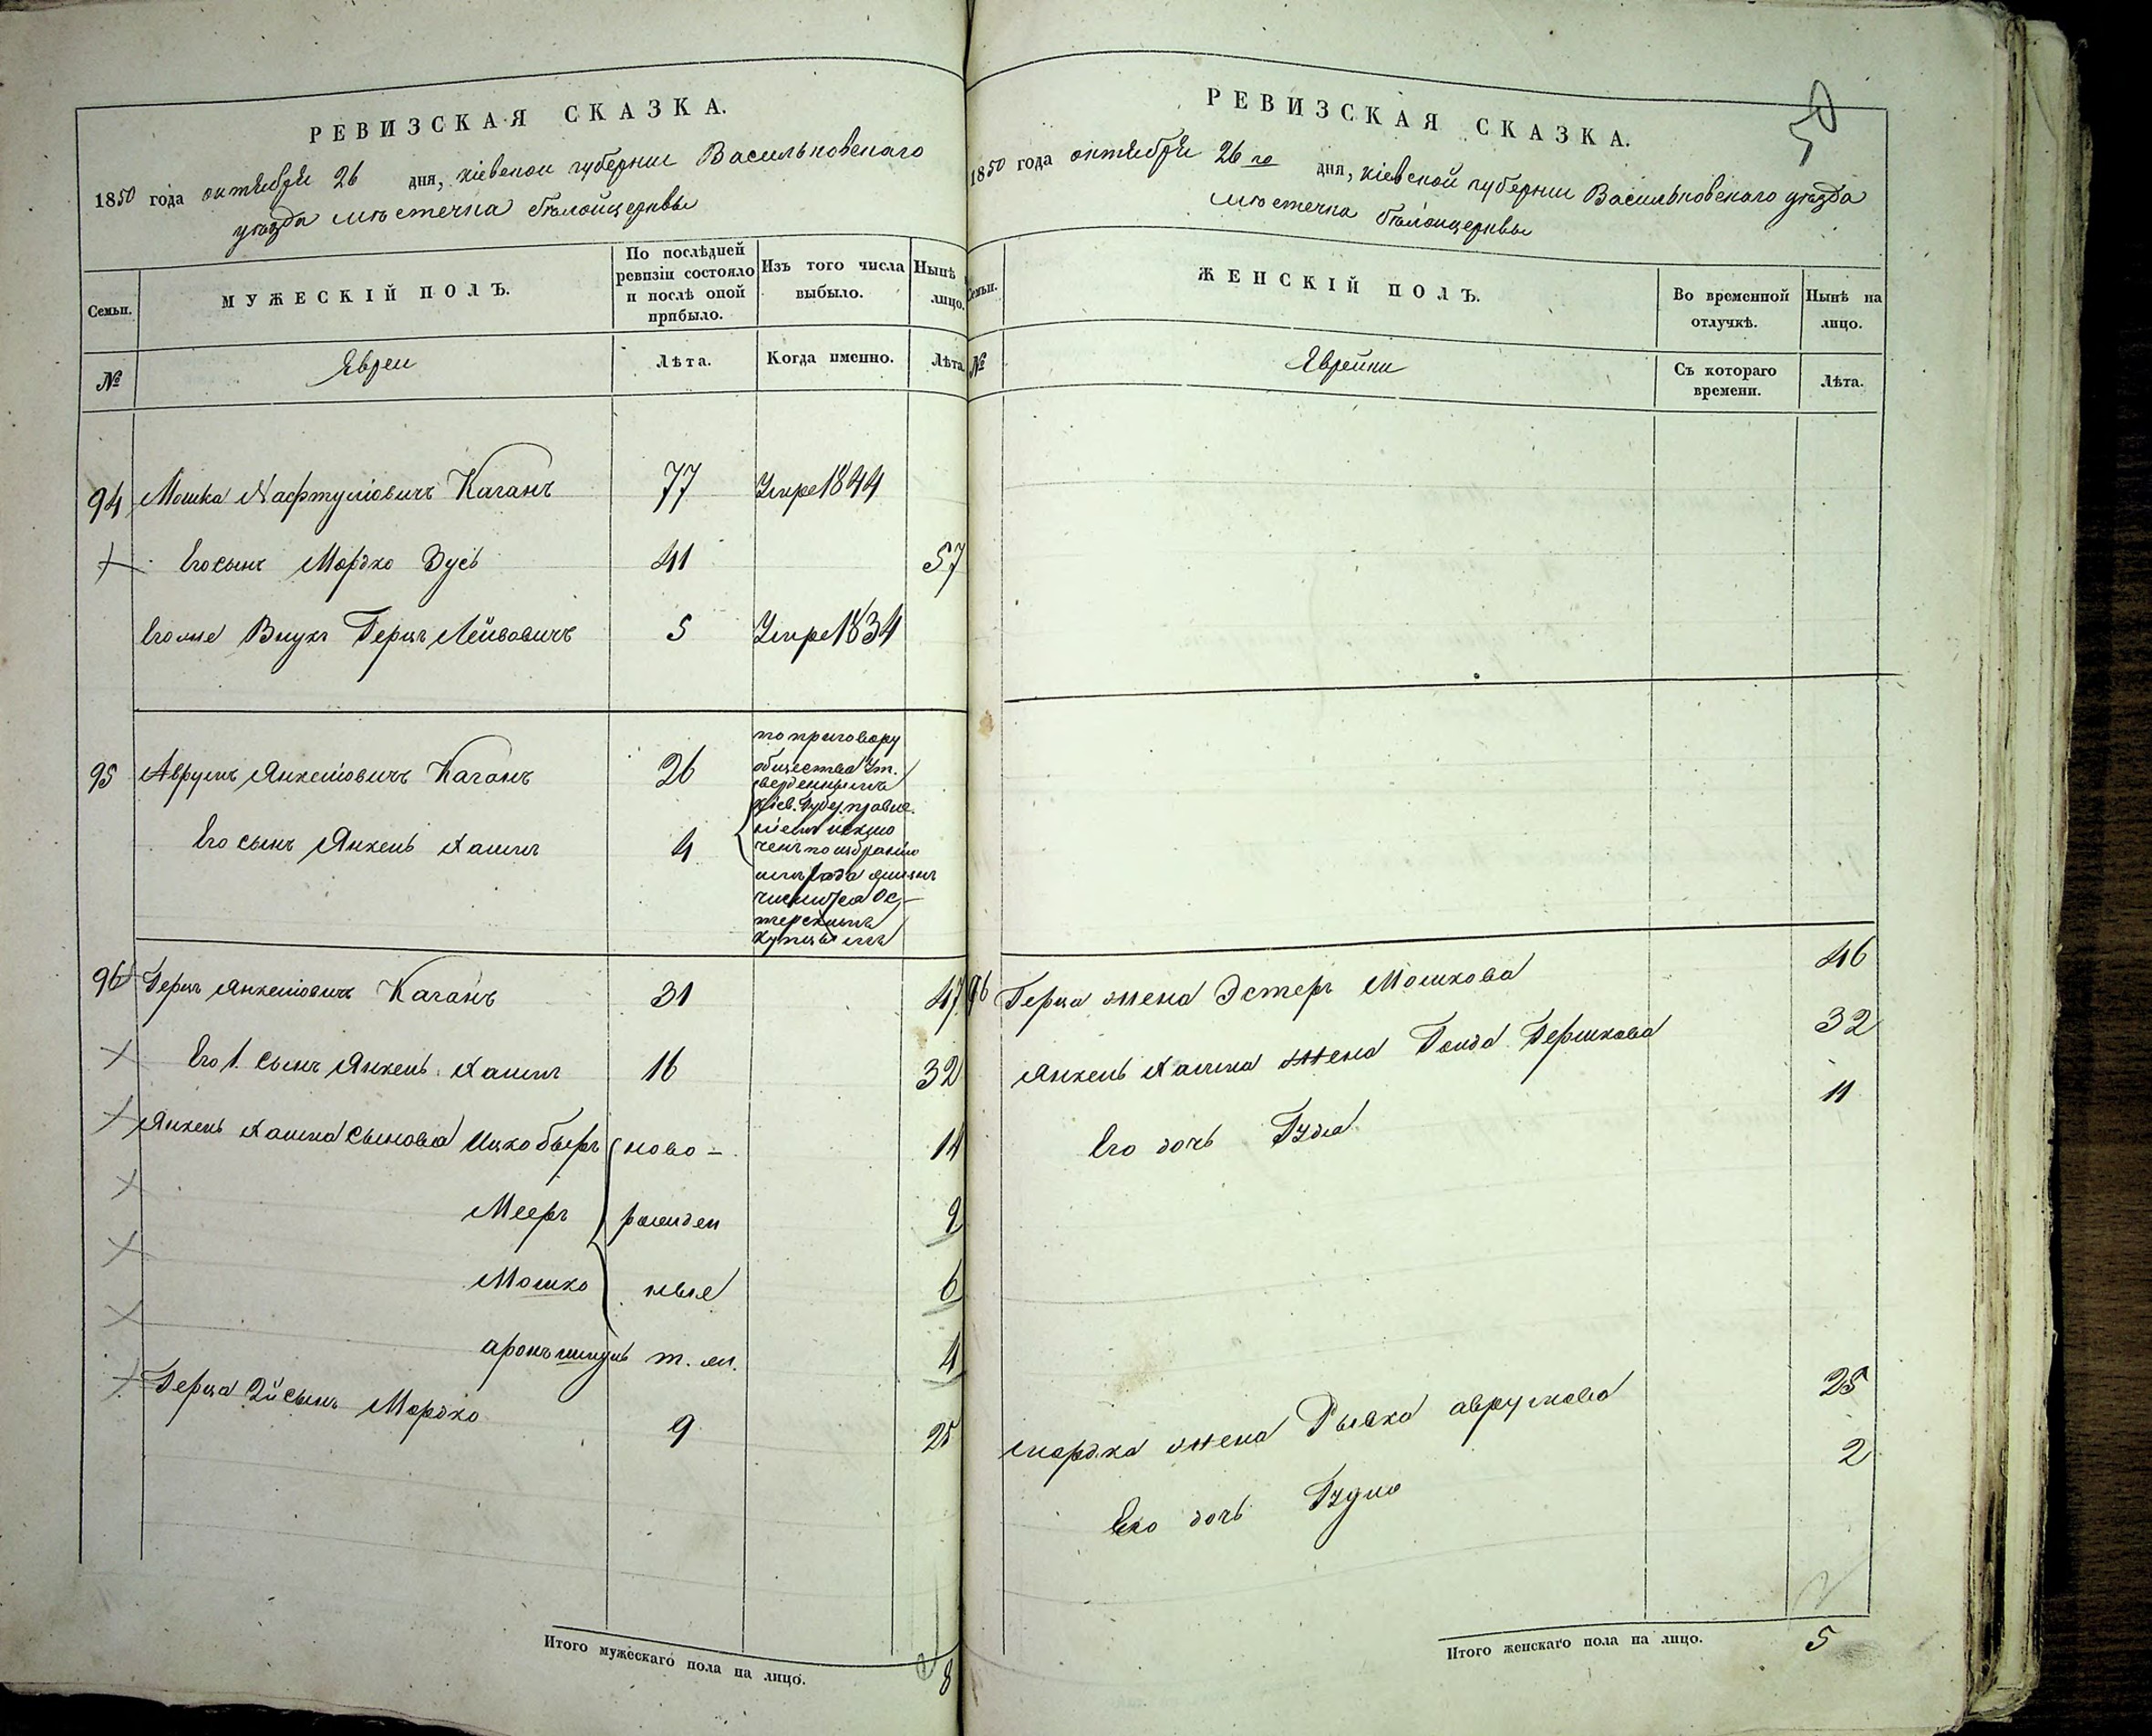 РЕВИЗСКАЯ СКАЗКА.
1850 года октября 26 дня, Кіевской губерніи Васильковскаго
уѣзда мѣстечка Бѣлойцеркви
Семьи.
МУЖЕСКІЙ ПОЛЪ.
По послѣдней ревизіи состояло и послѣ оной прибыло.
Изъ того числа выбыло.
Нынѣ
лицо.
№
Евреи
Лѣта.
Когда именно.
Лѣта
94 Мошка Нафтулiовичъ Каганъ 77 Умре 1844
Его сынъ Мордко Зусь 41 57
Егоже Внукъ Герцъ Лейбовичъ 5 Умре 1834
95 Аврумъ Янкелiовичъ Каганъ 26
Его сынъ Янкель Хаимъ 4
по приговору
общества ут.
вержденнымъ
Кіев. Губер. правле.
ніемъ исклю
ченъ по избранію
числится Ос-
терскимъ
купцемъ
96 Герцъ Янкелiовичъ Каганъ 31 47
Его 1. сынъ Янкель Хаимъ 16 32
Янкель Хаима сыновья Ицко Беръ ново= 14
Мееръ рожден 9
Мошко ные 6
Аронъ Шмуль т. ж. 4
Герца 2й сынъ Мордко 9 25
Итого мужескаго пола на лицо. 8
50
РЕВИЗСКАЯ СКАЗКА.
1850 года октября 26 го дня, Кіевской губерніи Васильковскаго уѣзда
мѣстечка Бѣлойцеркви
Семьи.
ЖЕНСКІЙ ПОЛЪ.
Во временной отлучкѣ.
Нынѣ на лицо.
№
Еврейки
Съ котораго времени.
Лѣта.
96 Герца жена Эстеръ Мошкова 46
Янкель Хаима жена Гольда Гершкова 32
Его дочь 11
Мордка жена Рывка Аврумова 25
Его дочь 2
Итого женскаго пола на лицо. 5